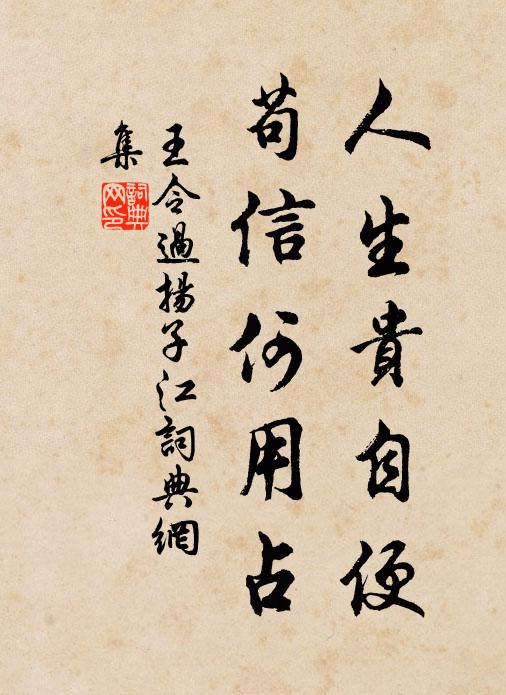 人生貴自便
苟信何用占
王令過揚子江詞典網
集
詞典網印